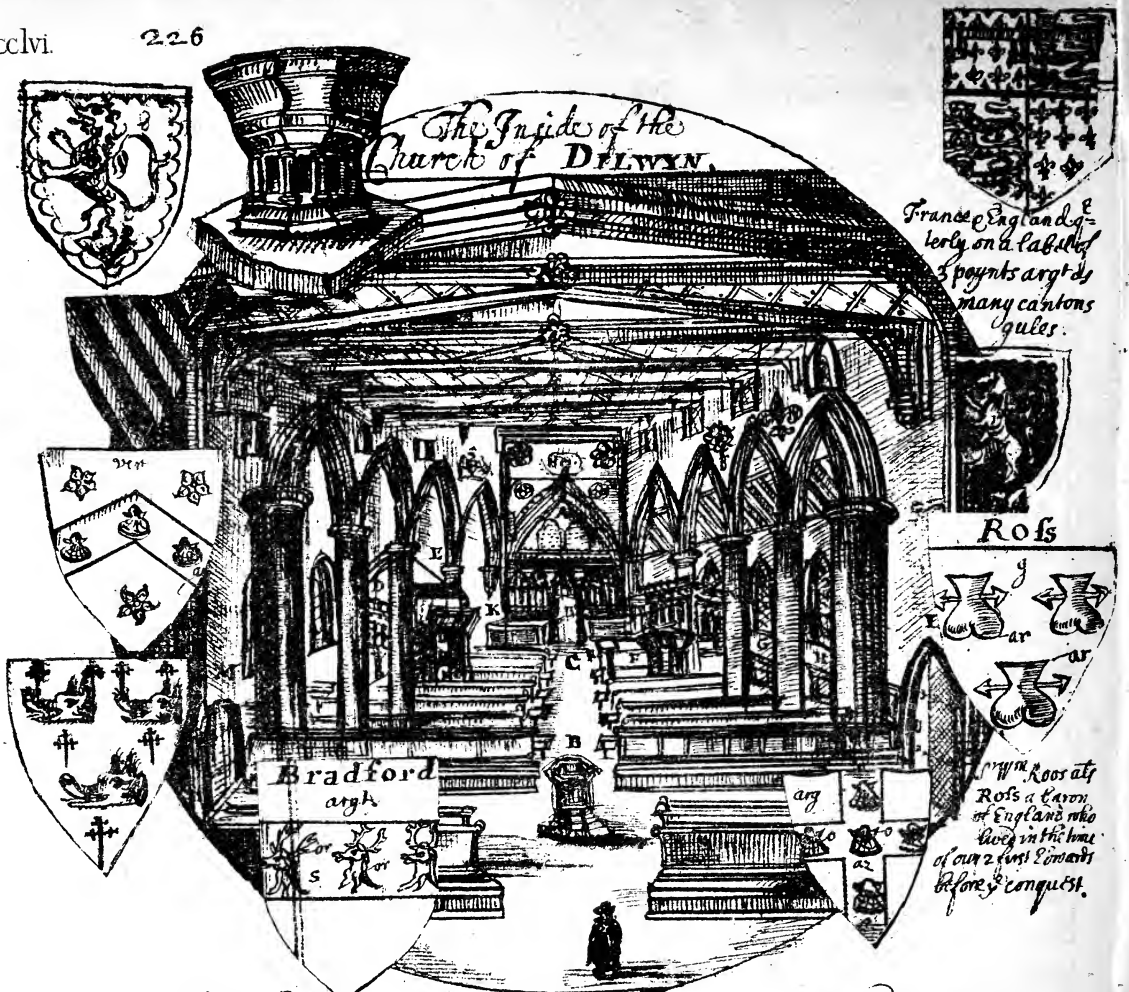 cclvi.
226
The Inside of the
Church of DILWYN.
France & England q
terly on a label of
3 poynts argt as
many cantons
gules.
vert
a
E
K
C
F
G
H
B
Ross
g
ar
ar
Sr Wm Roos als
Ross a baron
of England who
lived in the time
of our 2 first Edwards
before ye conquest.
Bradford
argt
or
S
or
arg
o
o
az